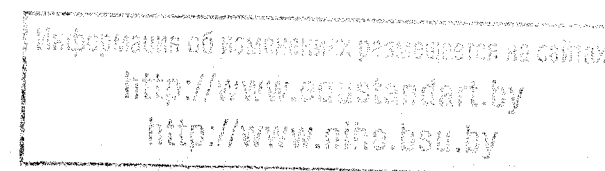 Информация об изменениях размещается на сайтах
http://www.edustandart.by
http://www.niho.bsu.by